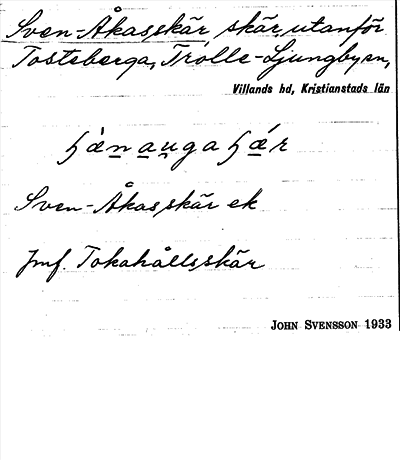 Sven-Åkasskär, skär utanför
Tosteberga, Trolle-Ljungby sn,
Villands hd, Kristianstads län
Sven-Åkasskär ek
Jmf. Tokahållsskär
JOHN SVENSSON 1933